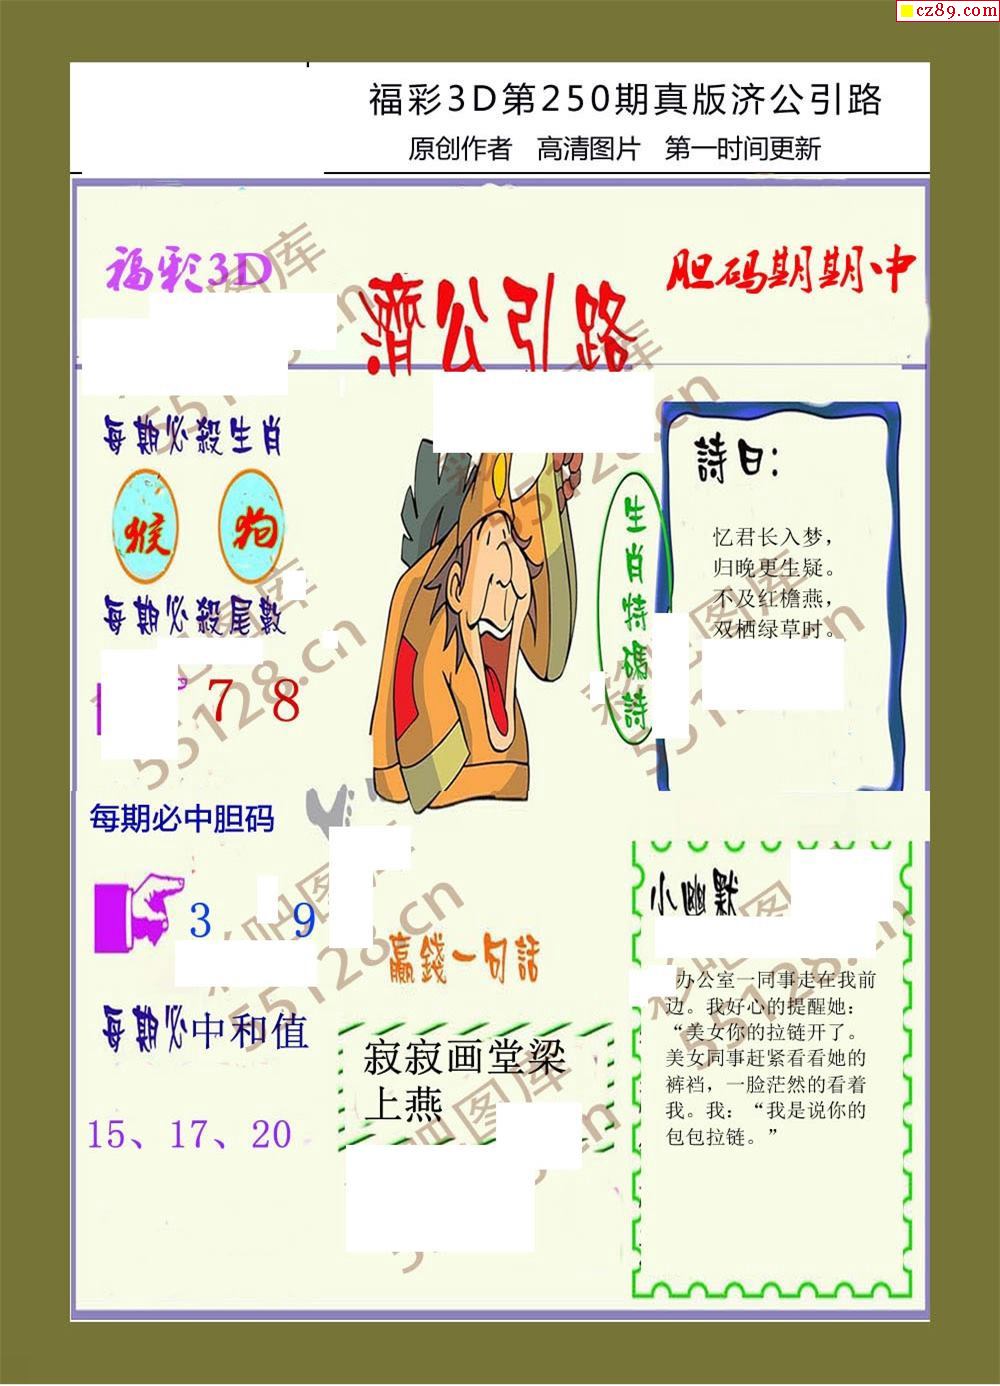 cz89.com
福彩3D第250期真版济公引路
原创作者 高清图片 第一时间更新
福彩3D
胆码期期中
濟公引路
每期必殺生肖
猴 狗
每期必殺尾數
7 8
每期必中胆码
3 9
每期必中和值
15、17、20
生肖特碼詩
詩曰：
忆君长入梦，
归晚更生疑。
不及红檐燕，
双栖绿草时。
赢錢一句話
寂寂画堂梁
上燕
小幽默
办公室一同事走在我前
边。我好心的提醒她：
“美女你的拉链开了。
美女同事赶紧看看她的
裤裆，一脸茫然的看着
我。我：“我是说你的
包包拉链。”
55128.cn
55128.cn
55128.cn
55128.cn
55128.cn